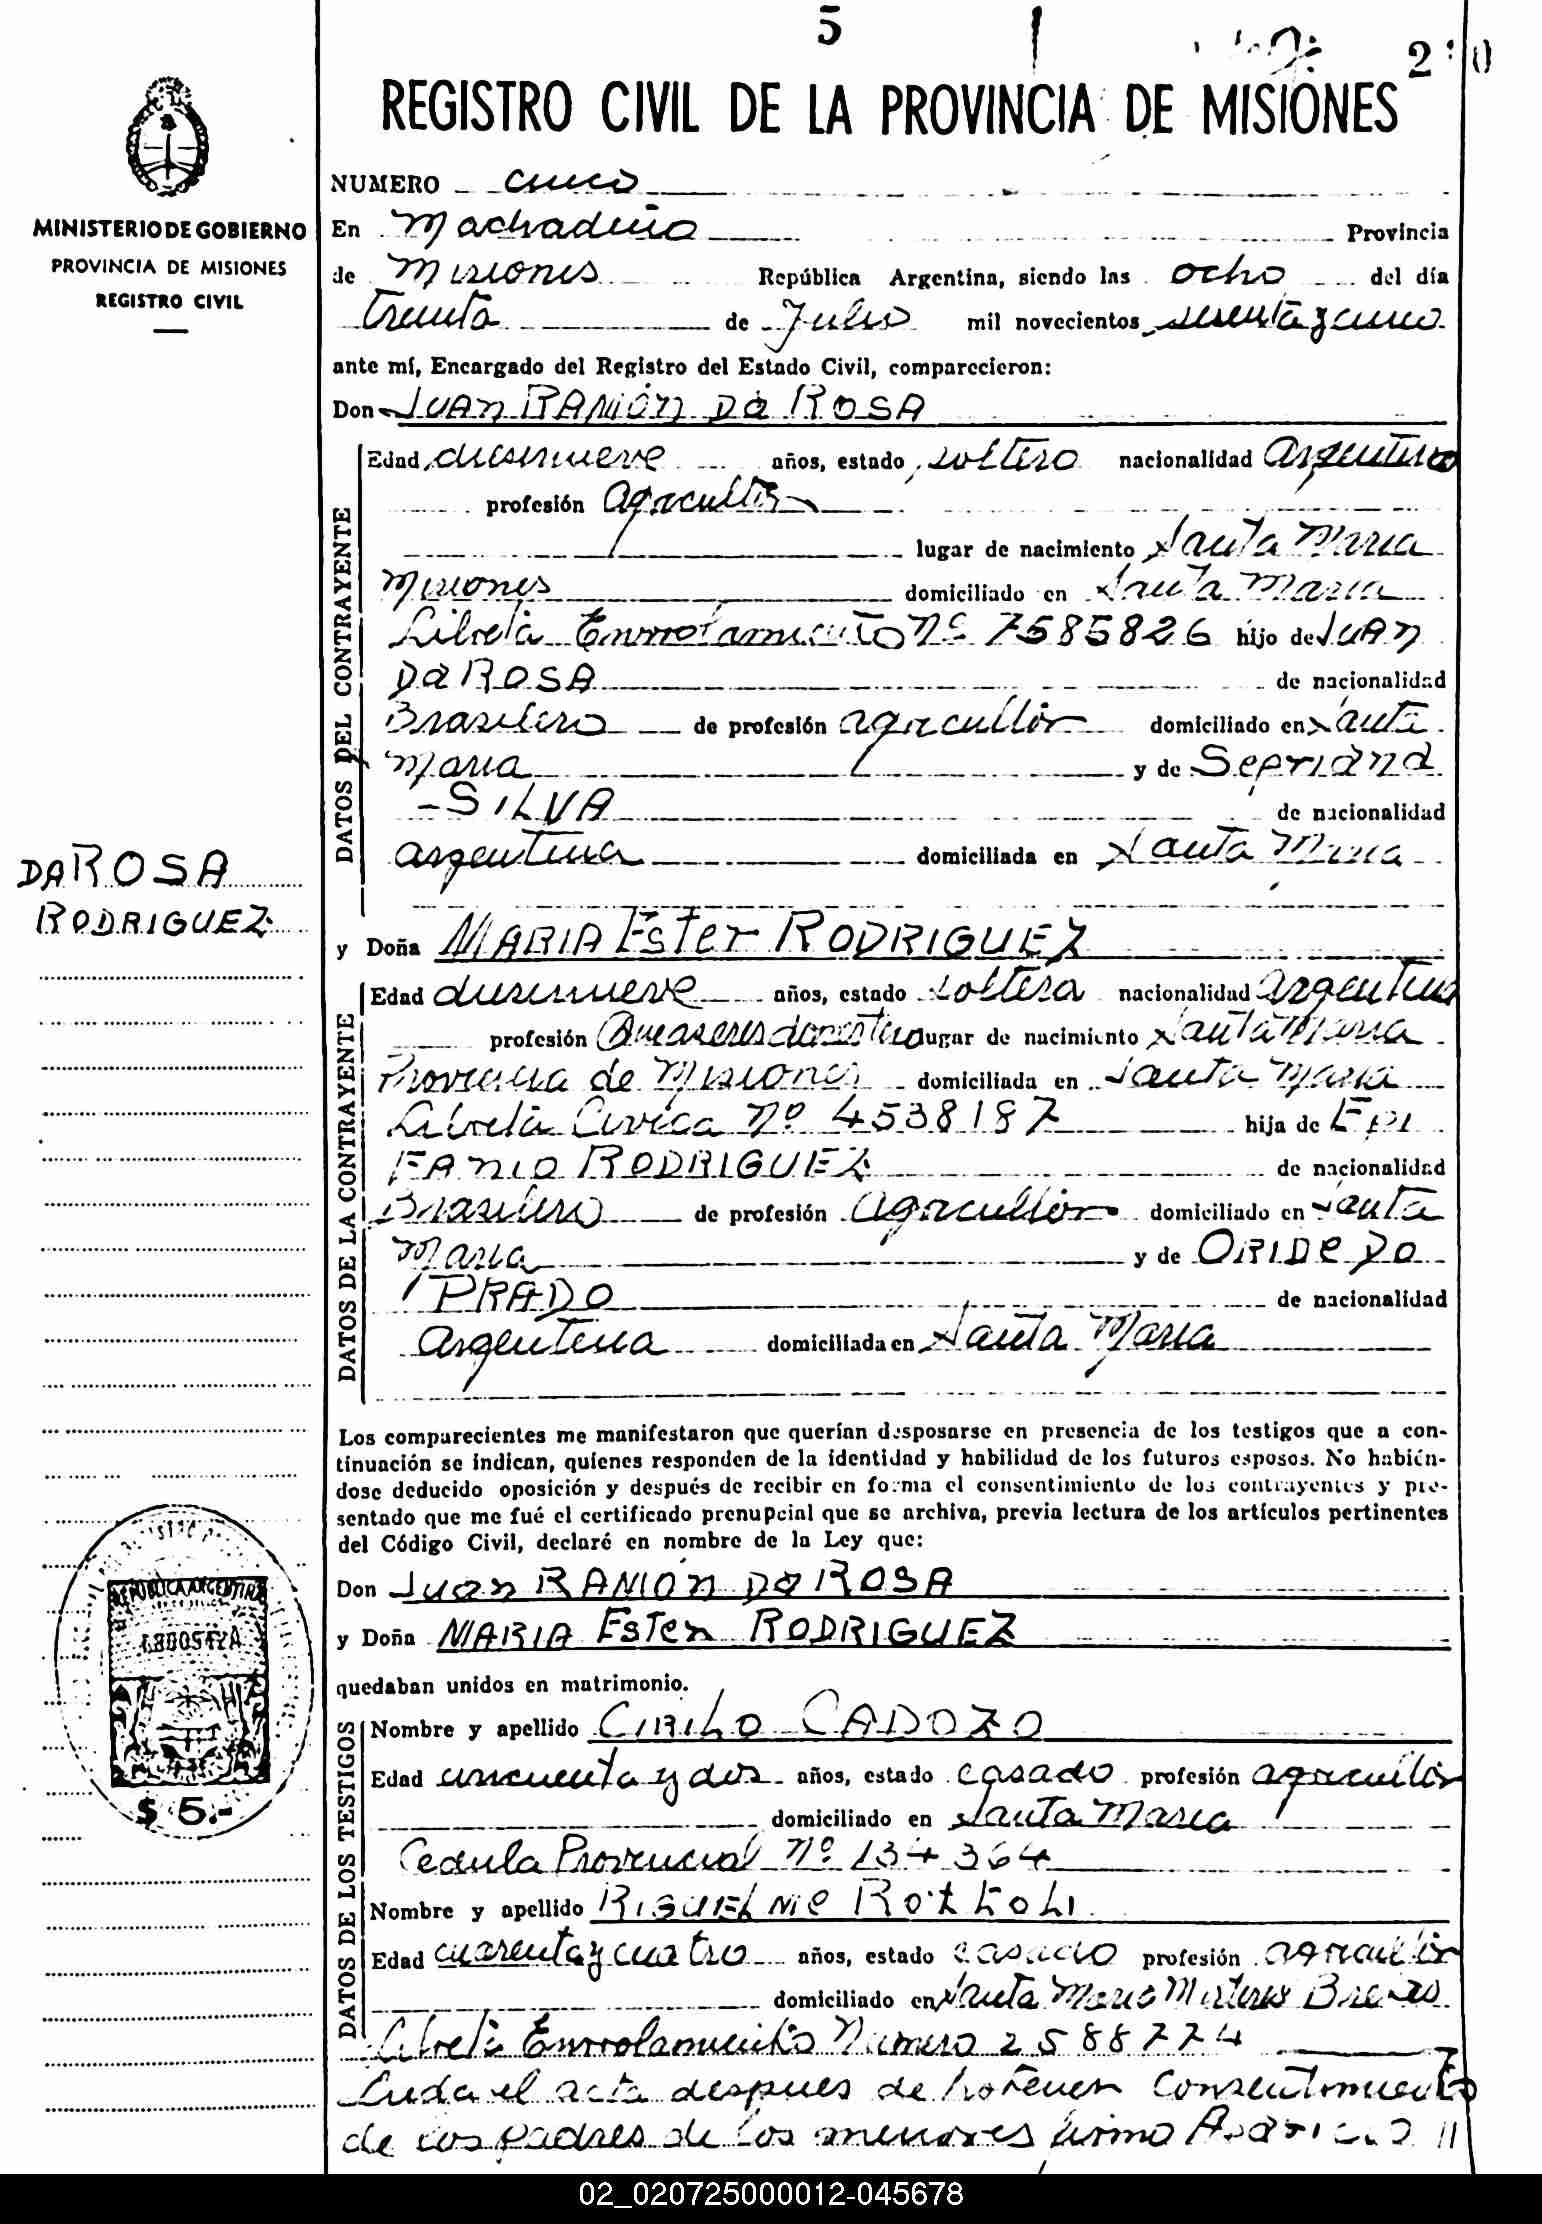 5
REGISTRO CIVIL DE LA PROVINCIA DE MISIONES
MINISTERIO DE GOBIERNO
PROVINCIA DE MISIONES
REGISTRO CIVIL
NUMERO cinco
En Machadiño Provincia
de Misiones República Argentina, siendo las ocho del día
Treinta de Julio mil novecientos sesenta y cinco
ante mí, Encargado del Registro del Estado Civil, comparecieron:
Don JUAN RAMÓN Da ROSA
DATOS DEL CONTRAYENTE
Edad diesinueve años, estado soltero nacionalidad Argentino
profesión Agricultor
lugar de nacimiento Santa Maria
Misiones domiciliado en Santa Maria
Libreta Enrrolamiento Nº 7585826 hijo de JUAN
Da ROSA de nacionalidad
Brasilero de profesión agricultor domiciliado en Santa
Maria y de Sepriana
SILVA de nacionalidad
argentina domiciliada en Santa Maria
DA ROSA
RODRIGUEZ
y Doña MARIA Ester RODRIGUEZ
DATOS DE LA CONTRAYENTE
Edad diesinueve años, estado soltera nacionalidad argentina
profesión Queaseres domestico lugar de nacimiento Santa Maria
Provincia de Misiones domiciliada en Santa Maria
Libreta Civica Nº 4538187 hija de EPI
FANIO RODRIGUEZ de nacionalidad
Brasilero de profesión Agricultor domiciliado en Santa
Maria y de ORIDE DO
PRADO de nacionalidad
argentina domiciliada en Santa Maria
Los comparecientes me manifestaron que querían desposarse en presencia de los testigos que a con-
tinuación se indican, quienes responden de la identidad y habilidad de los futuros esposos. No habién-
dose deducido oposición y después de recibir en forma el consentimiento de los contrayentes y pre-
sentado que me fué el certificado prenupcial que se archiva, previa lectura de los artículos pertinentes
del Código Civil, declaré en nombre de la Ley que:
Don Juan RAMÓN Da ROSA
y Doña MARIA Ester RODRIGUEZ
quedaban unidos en matrimonio.
REPUBLICA ARGENTINA
$ 5.-
DATOS DE LOS TESTIGOS
Nombre y apellido CIRILO CADOZO
Edad cincuenta y dos años, estado casado profesión agricultor
domiciliado en Santa Maria
Cedula Provincial Nº 134364
Nombre y apellido RIGUELME
Edad cuarenta y cuatro años, estado casado profesión agricultor
domiciliado en Santa Maria
Libreta Enrrolamiento Numero 2588774
Leida el acta despues de consentimiento
de los padres de los menores firmo
02_020725000012-045678